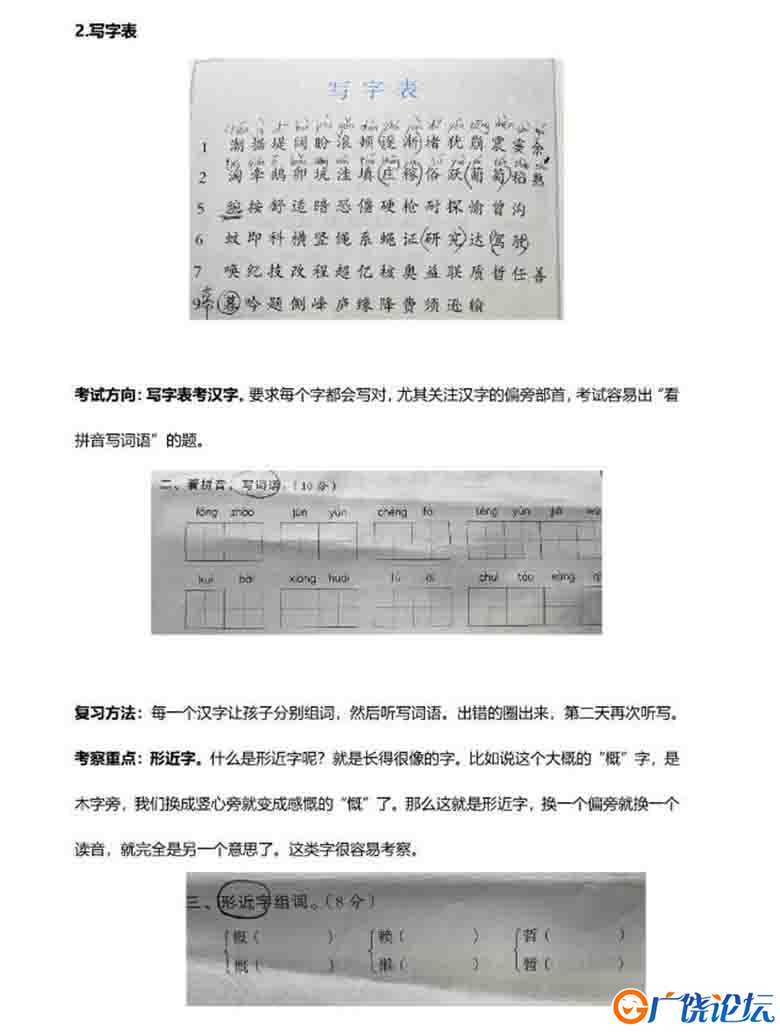 2.写字表
写字表
1 潮据堤阔盼滚顿逐渐堵犹崩震霎余
2 淘牵鹅卵坑洼填庄稼俗跃葡萄稻熟
5 豌按舒适暗恐僵硬枪耐探愉曾沟
6 蚊即科横竖绳系蝇证研究达驾驶
7 唤纪技改程超亿核奥益联质哲任善
9 暮吟题侧峰庐缘降费须逊输
考试方向：写字表考汉字。要求每个字都会写对，尤其关注汉字的偏旁部首，考试容易出“看
拼音写词语”的题。
二、看拼音，写词语。（10分）
复习方法：每一个汉字让孩子分别组词，然后听写词语。出错的圈出来，第二天再次听写。
考察重点：形近字。什么是形近字呢？就是长得很像的字。比如说这个大概的“概”字，是
木字旁，我们换成竖心旁就变成感慨的“慨”了。那么这就是形近字，换一个偏旁就换一个
读音，就完全是另一个意思了。这类字很容易考察。
三、形近字组词。（8分）
概（ ） 赖（ ） 哲（ ）
慨（ ） 懒（ ） 暂（ ）
广饶论坛